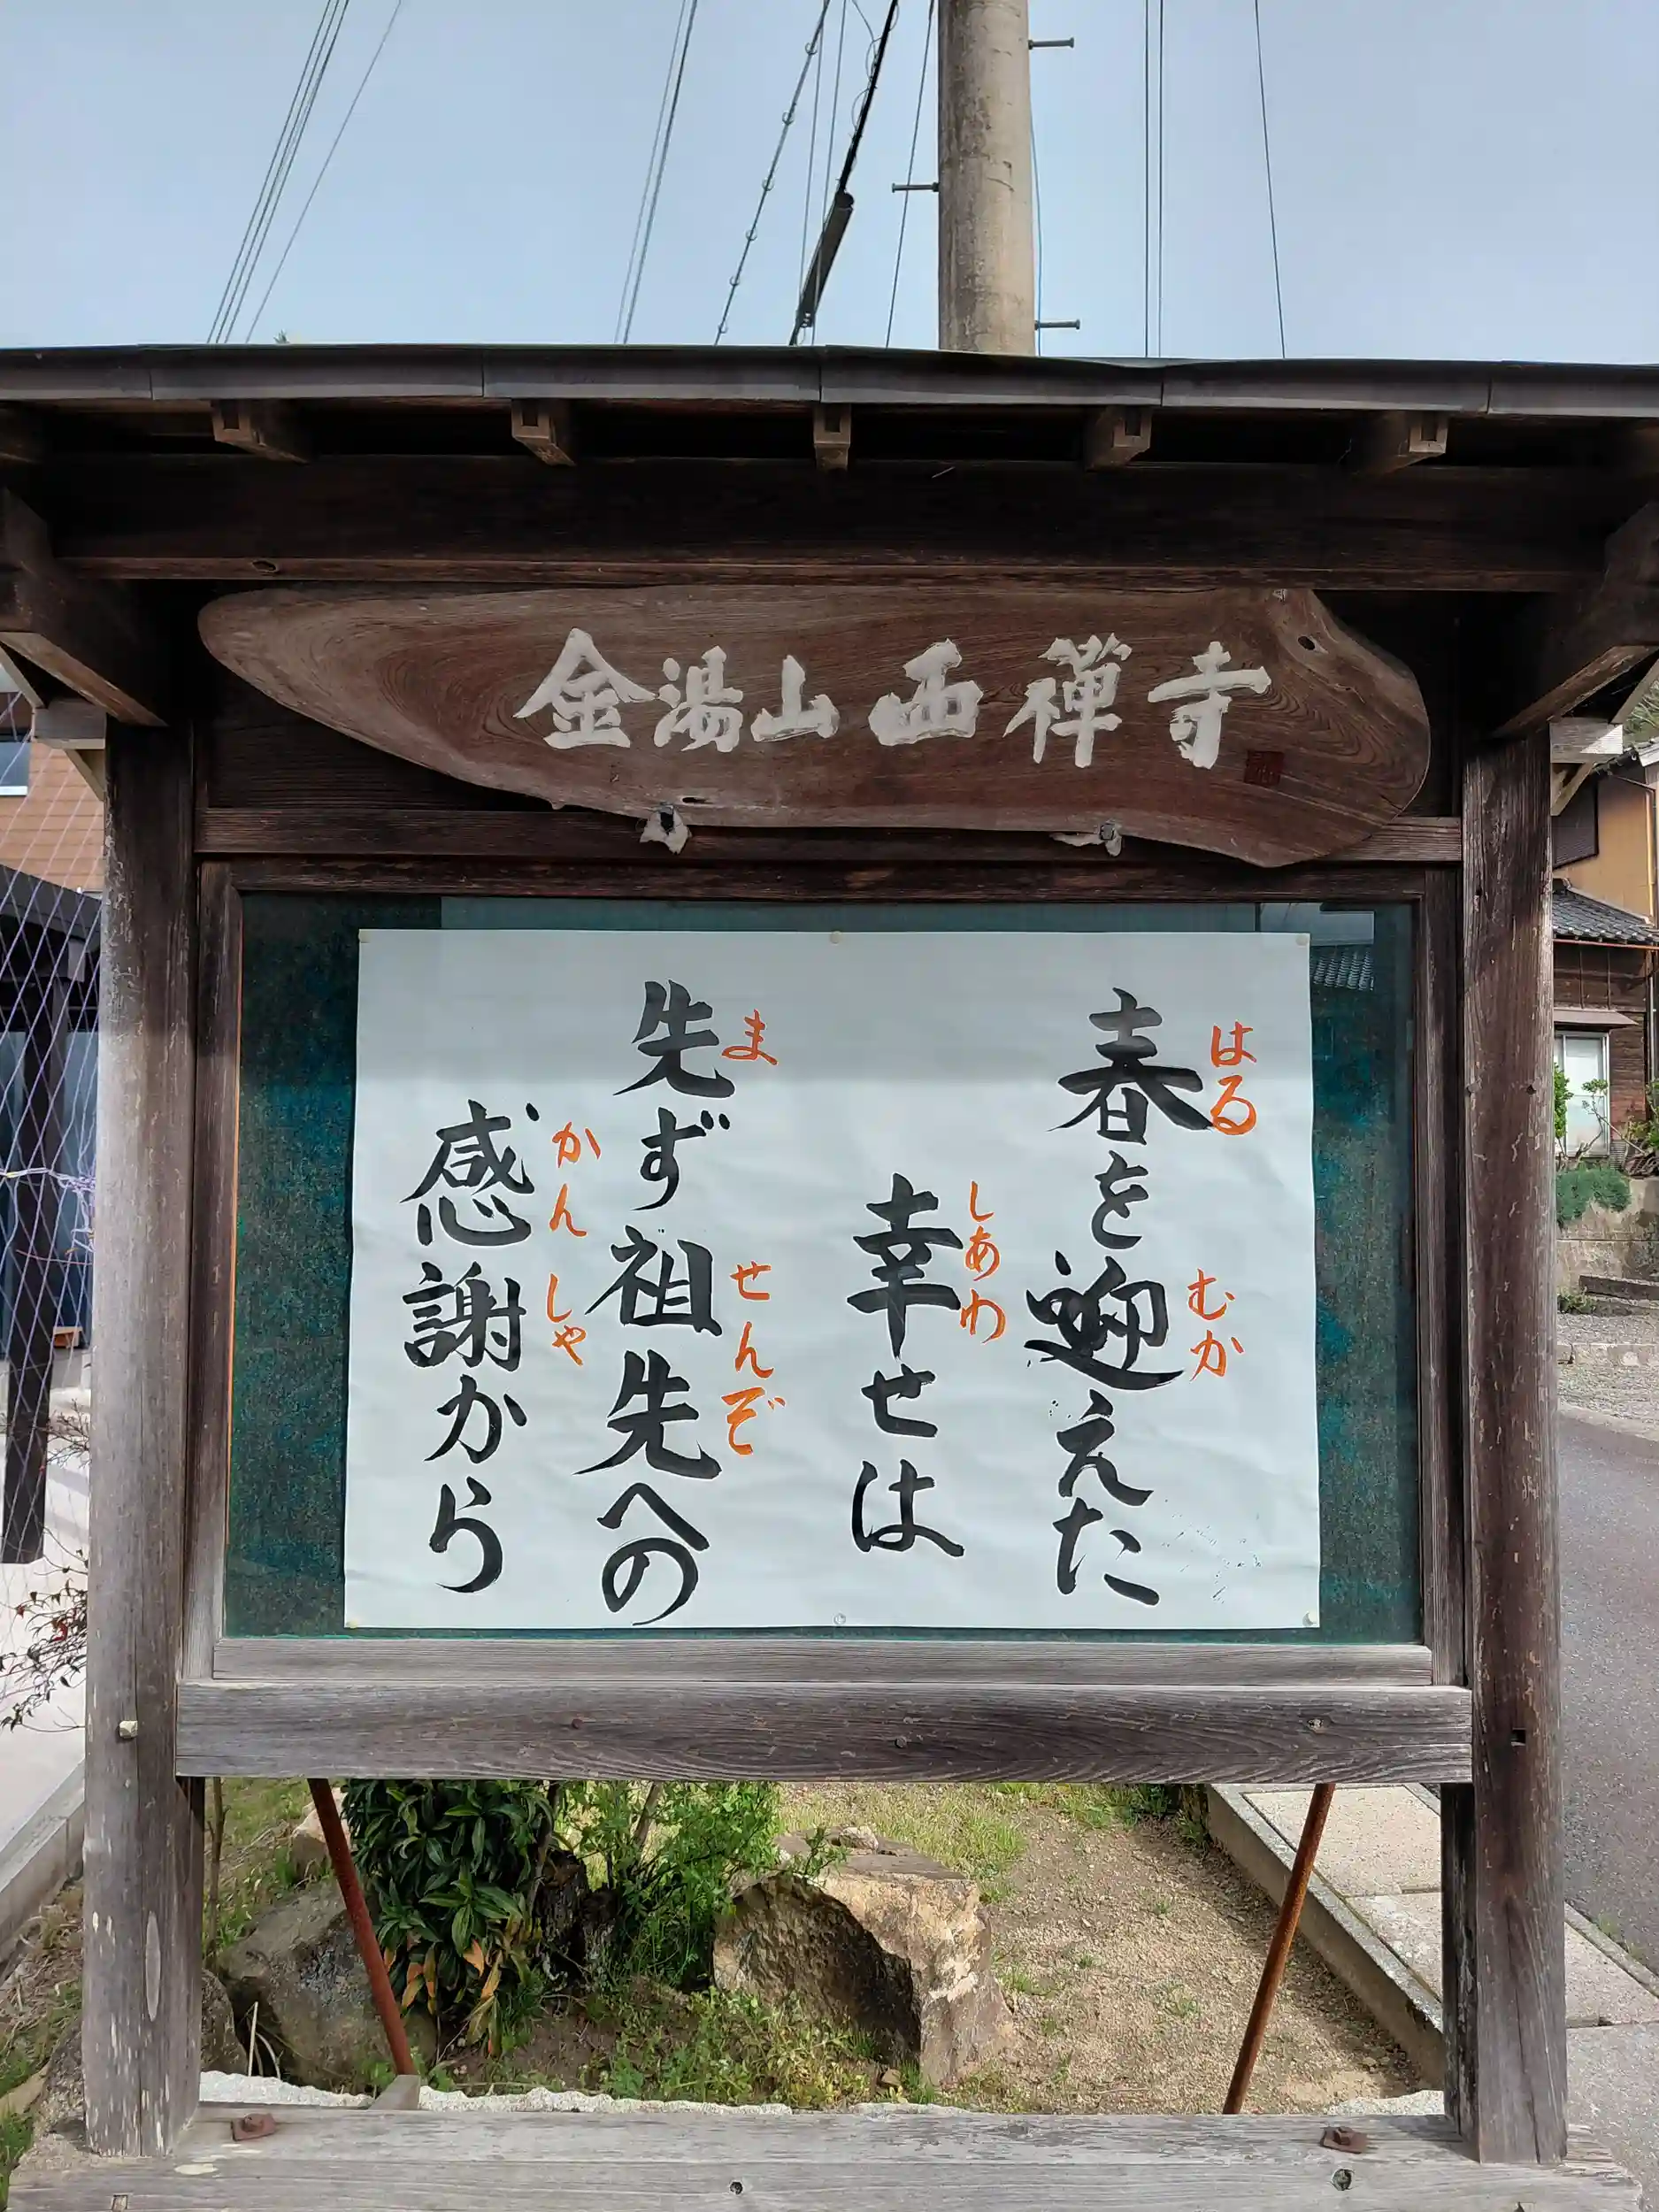 金湯山西禅寺
春を迎えた
はる
むか
幸せは
しあわ
先ず祖先への
ま
せんぞ
感謝から
かんしゃ